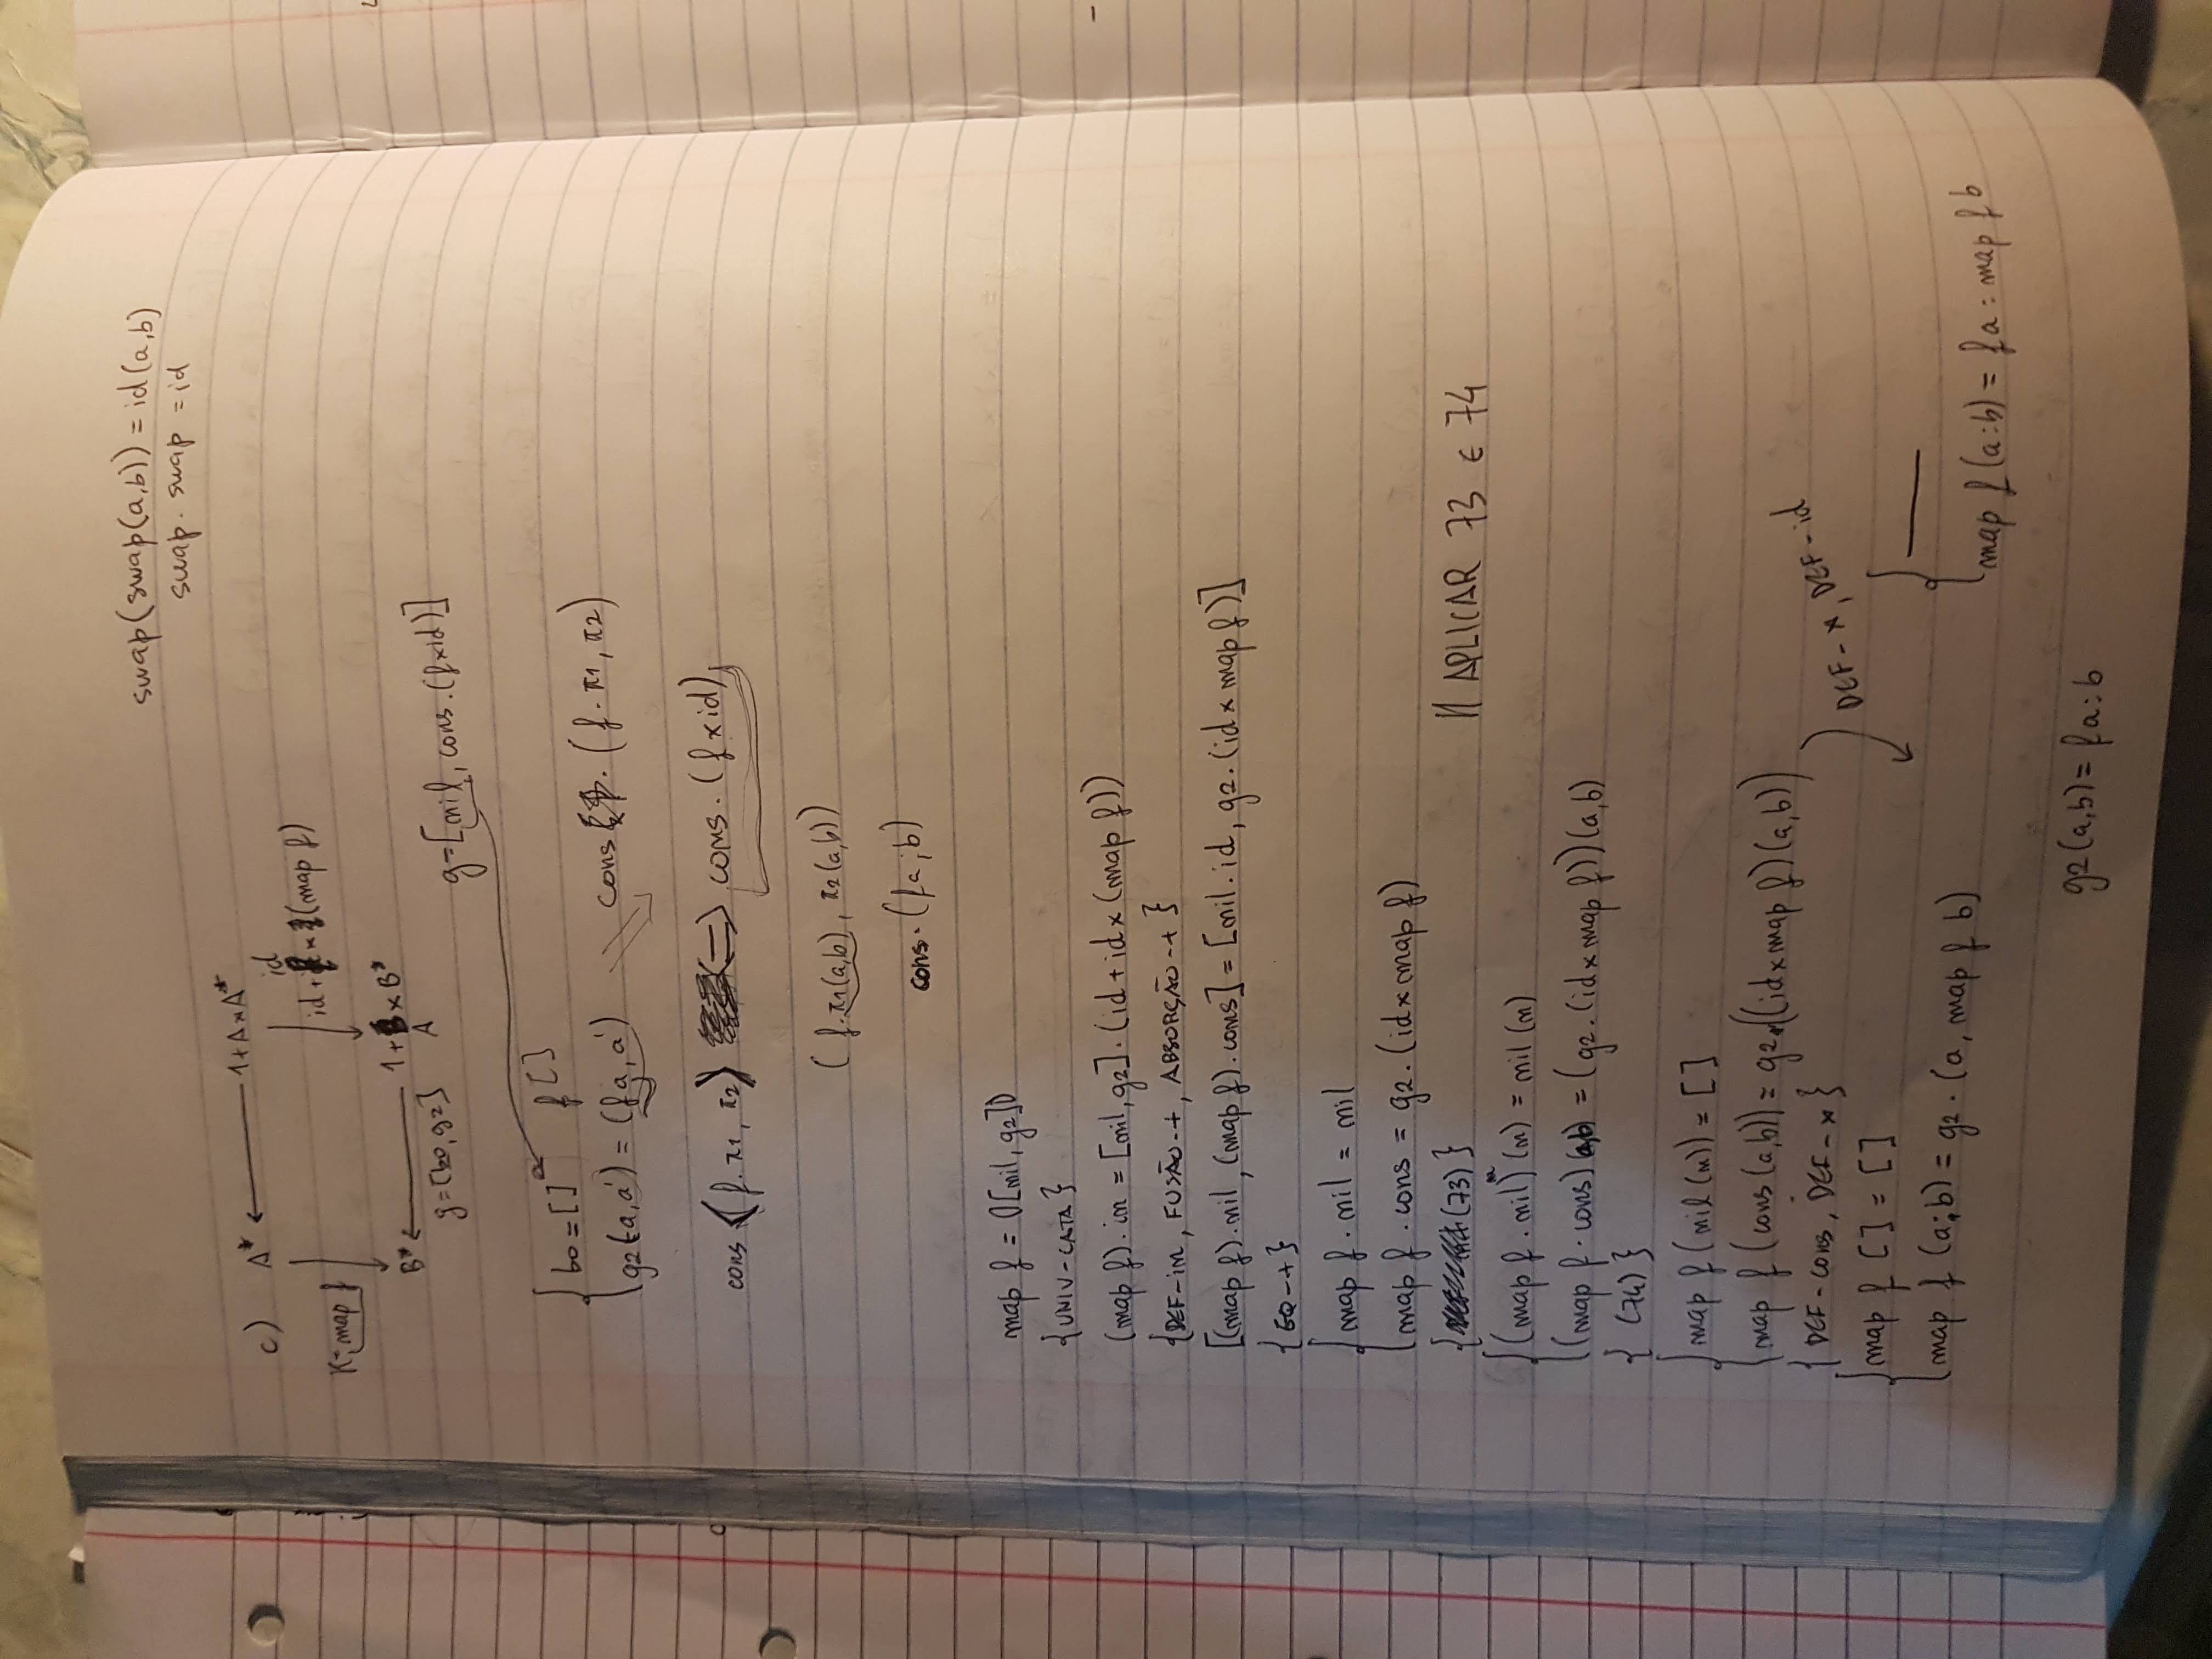 swap(swap(a,b)) = id(a,b)
swap. swap = id
c) A* ← 1+A×A*
id
K=map f id + × (map f)
B* ← 1+ × B*
A
g=[bo,g2]
g=[nil, cons.(f×id)]
bo=[] f[]
g2(a,a') = (fa,a') cons . (f.π1, π2)
cons ⟨f.π1, π2⟩ (=) cons. (f×id)
(f.π1(a,b), π2(a,b))
cons. (fa;b)
map f = ([nil, g2])
{UNIV-CATA}
(map f). in = [nil,g2].(id+id×(map f))
{DEF-in, FUSÃO-+, ABSORÇÃO-+}
[(map f).nil, (map f).cons] = [nil.id, g2.(id×map f)]
{EQ-+}
map f . nil = nil
map f . cons = g2.(id×map f)
{(73)} // APLICAR 73 E 74
(map f . nil) (n) = nil(n)
(map f . cons) (a,b) = (g2.(id×map f))(a,b)
{ (74) }
map f (nil(n)) = []
map f (cons(a,b)) = g2((id×map f)(a,b))
{ DEF-cons, DEF-× } DEF-×, DEF-id
map f [] = []
map f (a:b) = g2.(a, map f b)
map f (a:b) = f a : map f b
g2(a,b) = f a : b